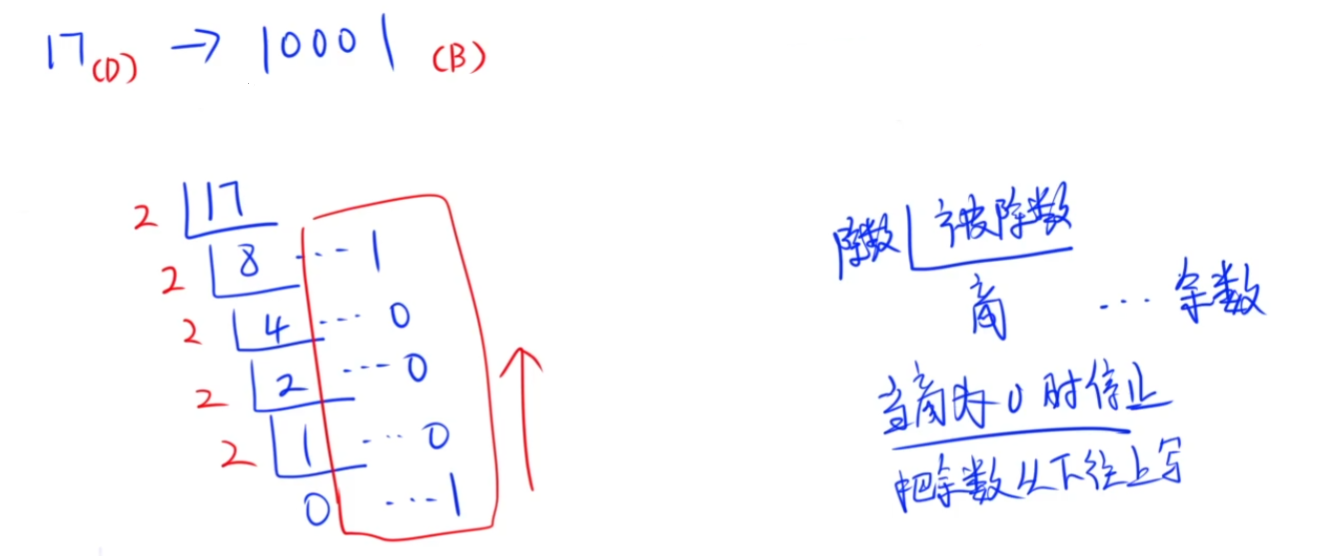 17(D) → 10001 (B)
2 17
2 8 ... 1
2 4 ... 0
2 2 ... 0
2 1 ... 0
0 ... 1
除数 被除数
商 ... 余数
当商为0时停止
把余数从下往上写